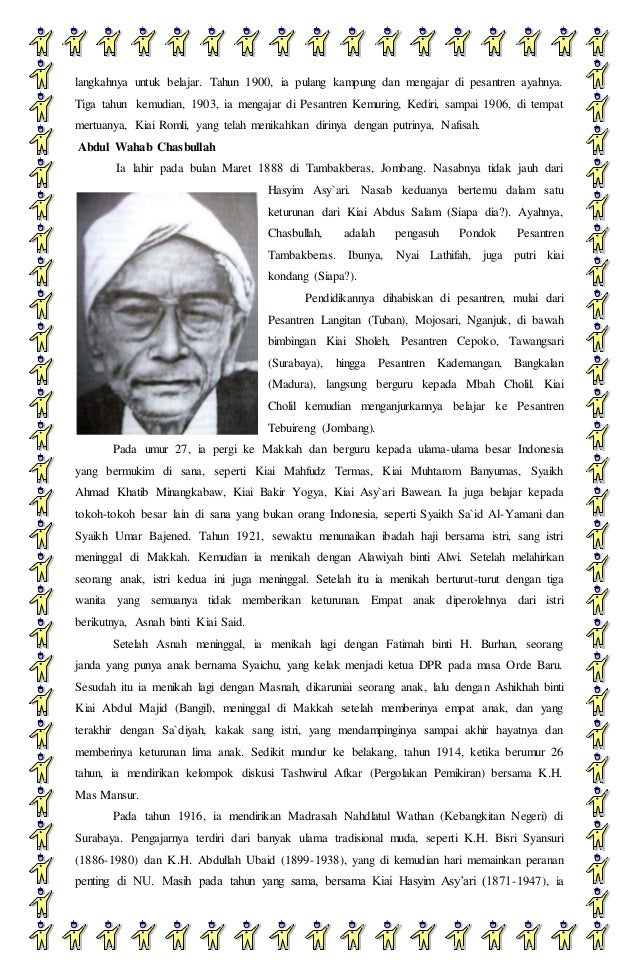 langkahnya untuk belajar. Tahun 1900, ia pulang kampung dan mengajar di pesantren ayahnya.
Tiga tahun kemudian, 1903, ia mengajar di Pesantren Kemuring, Kediri, sampai 1906, di tempat
mertuanya, Kiai Romli, yang telah menikahkan dirinya dengan putrinya, Nafisah.
Abdul Wahab Chasbullah
Ia lahir pada bulan Maret 1888 di Tambakberas, Jombang. Nasabnya tidak jauh dari
Hasyim Asy`ari. Nasab keduanya bertemu dalam satu
keturunan dari Kiai Abdus Salam (Siapa dia?). Ayahnya,
Chasbullah, adalah pengasuh Pondok Pesantren
Tambakberas. Ibunya, Nyai Lathifah, juga putri kiai
kondang (Siapa?).
Pendidikannya dihabiskan di pesantren, mulai dari
Pesantren Langitan (Tuban), Mojosari, Nganjuk, di bawah
bimbingan Kiai Sholeh, Pesantren Cepoko, Tawangsari
(Surabaya), hingga Pesantren Kademangan, Bangkalan
(Madura), langsung berguru kepada Mbah Cholil. Kiai
Cholil kemudian menganjurkannya belajar ke Pesantren
Tebuireng (Jombang).
Pada umur 27, ia pergi ke Makkah dan berguru kepada ulama-ulama besar Indonesia
yang bermukim di sana, seperti Kiai Mahfudz Termas, Kiai Muhtarom Banyumas, Syaikh
Ahmad Khatib Minangkabaw, Kiai Bakir Yogya, Kiai Asy`ari Bawean. Ia juga belajar kepada
tokoh-tokoh besar lain di sana yang bukan orang Indonesia, seperti Syaikh Sa`id Al-Yamani dan
Syaikh Umar Bajened. Tahun 1921, sewaktu menunaikan ibadah haji bersama istri, sang istri
meninggal di Makkah. Kemudian ia menikah dengan Alawiyah binti Alwi. Setelah melahirkan
seorang anak, istri kedua ini juga meninggal. Setelah itu ia menikah berturut-turut dengan tiga
wanita yang semuanya tidak memberikan keturunan. Empat anak diperolehnya dari istri
berikutnya, Asnah binti Kiai Said.
Setelah Asnah meninggal, ia menikah lagi dengan Fatimah binti H. Burhan, seorang
janda yang punya anak bernama Syaichu, yang kelak menjadi ketua DPR pada masa Orde Baru.
Sesudah itu ia menikah lagi dengan Masnah, dikaruniai seorang anak, lalu dengan Ashikhah binti
Kiai Abdul Majid (Bangil), meninggal di Makkah setelah memberinya empat anak, dan yang
terakhir dengan Sa`diyah, kakak sang istri, yang mendampinginya sampai akhir hayatnya dan
memberinya keturunan lima anak. Sedikit mundur ke belakang, tahun 1914, ketika berumur 26
tahun, ia mendirikan kelompok diskusi Tashwirul Afkar (Pergolakan Pemikiran) bersama K.H.
Mas Mansur.
Pada tahun 1916, ia mendirikan Madrasah Nahdlatul Wathan (Kebangkitan Negeri) di
Surabaya. Pengajarnya terdiri dari banyak ulama tradisional muda, seperti K.H. Bisri Syansuri
(1886-1980) dan K.H. Abdullah Ubaid (1899-1938), yang di kemudian hari memainkan peranan
penting di NU. Masih pada tahun yang sama, bersama Kiai Hasyim Asy'ari (1871-1947), ia